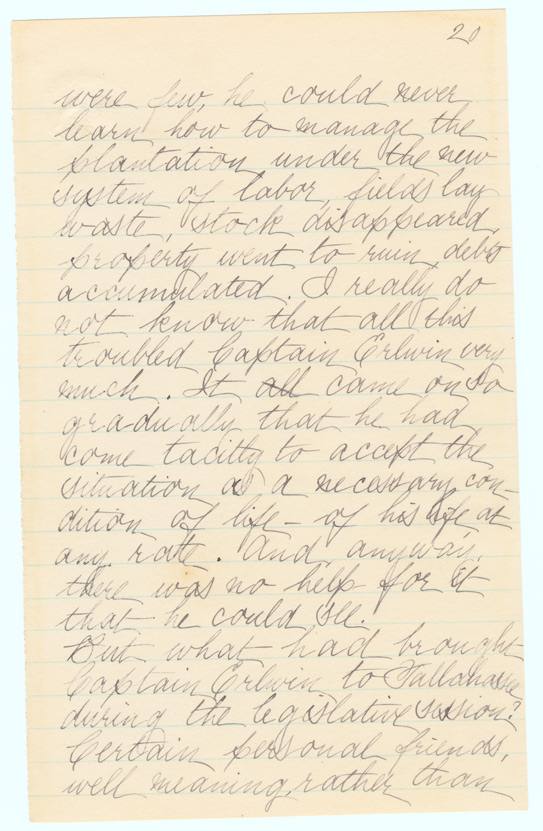 20
were few, he could never
learn how to manage the
plantation under the new
system of labor, fields lay
waste, stock disappeared,
property went to ruin, debts
accumulated. I really do
not know that all this
troubled Captain Erlwin very
much. It all came on so
gradually that he had
come tacitly to accept the
situation as a necessary con-
dition of life - of his life at
any rate. And, anyway,
there was no help for it
that he could see.
But what had brought
Captain Erlwin to Tallahassee
during the legislative session?
Certain personal friends,
well meaning, rather than